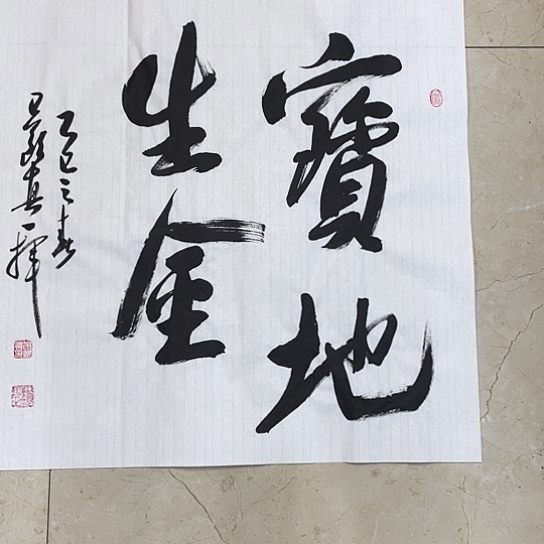 寶地
生金
乙巳之春